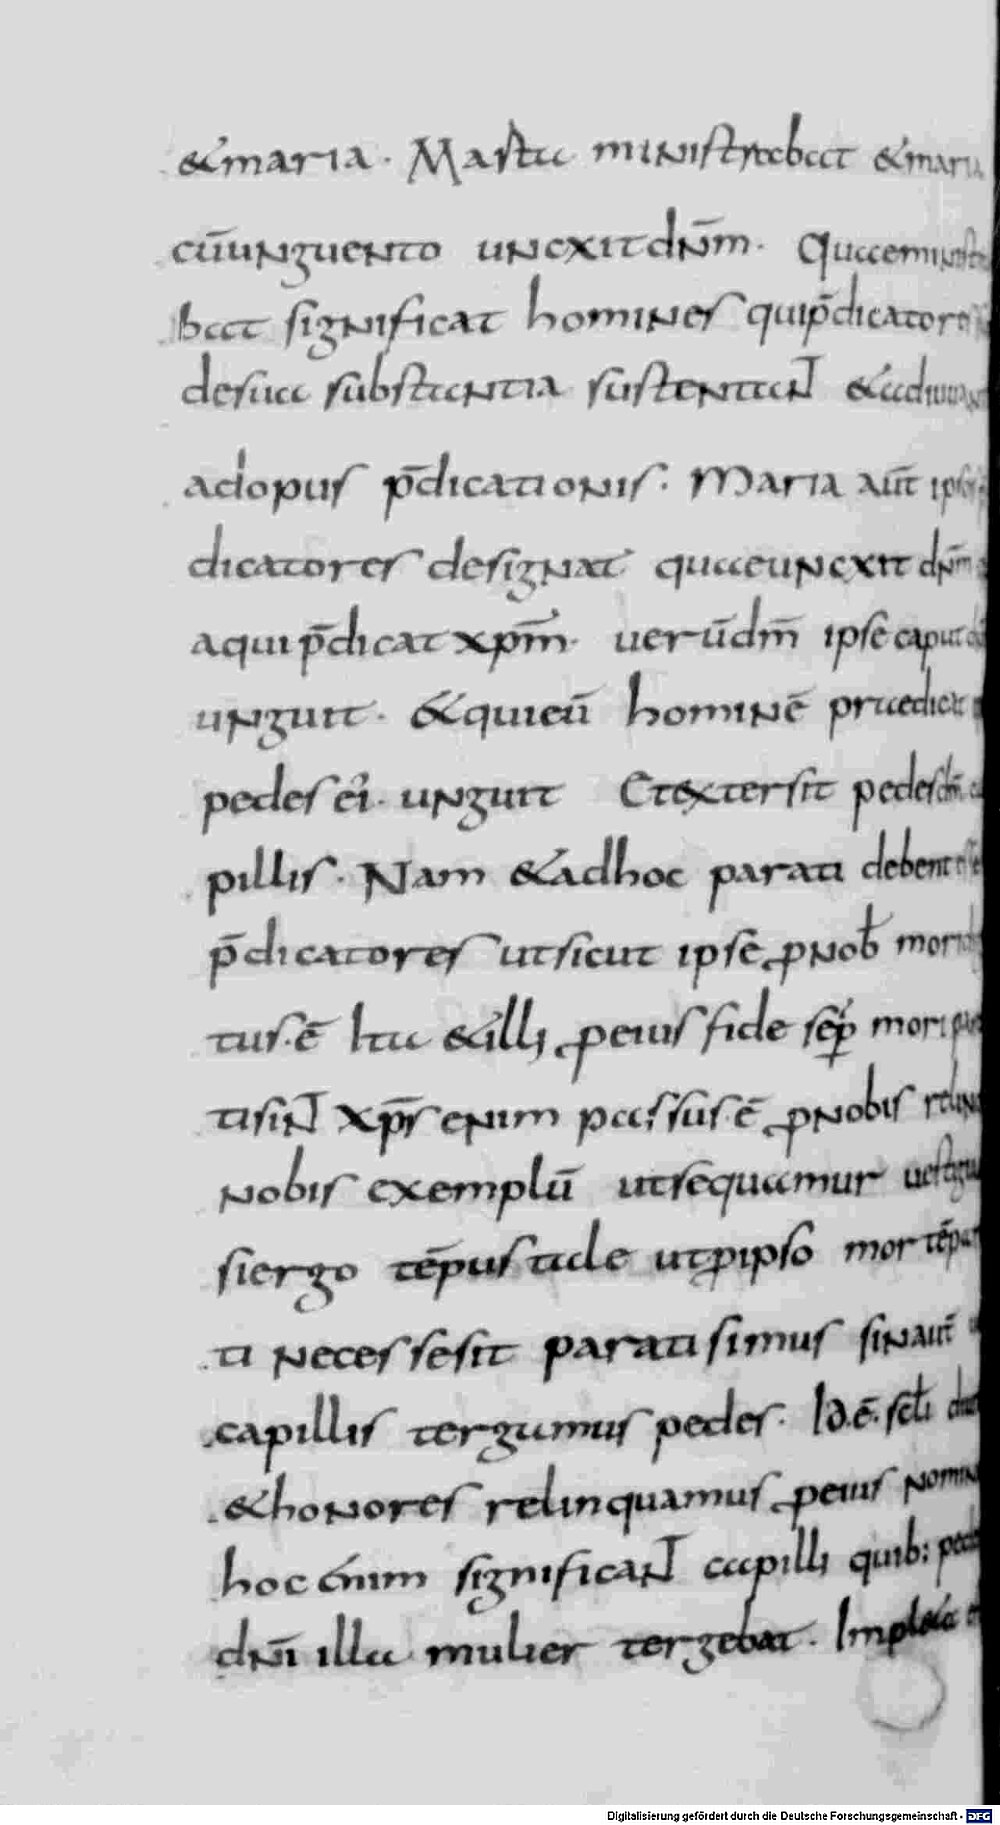 &maria. Masta ministrabat &maria
cūunguento unexit dn̄m. Quaeminist
bat significat homines quip̄dicatores
desua substantia sustentant &adiuuant
adopus p̄dicationis. Maria aut̄
dicatores designat quaeunexit dn̄m
aqui p̄dicat xpm̄. uerū dm̄ ipse caput
unguit. &quieū hominē praedicat
pedes ei. unguit Etextersit pedes dn̄i
pillis. Nam &adhoc parati debent esse
p̄dicatores utsicut ipse ꝓnob̄
tus.ē Ita &illi ꝓeius fide sēp mori
tisint xp̄s enim passus.ē ꝓnobis
nobis exemplū utsequamur uestigia
siergo tēpus tale utꝓipso mortē
ti necessesit parati simus sinaut̄
capillis tergumus pedes. Id.ē. sc̄li
&honores relinquamus ꝓeius nomin
hoc enim significant capilli quib; pedes
dn̄i illa mulier tergebat. Impl&a
Digitalisierung gefördert durch die Deutsche Forschungsgemeinschaft - DFG